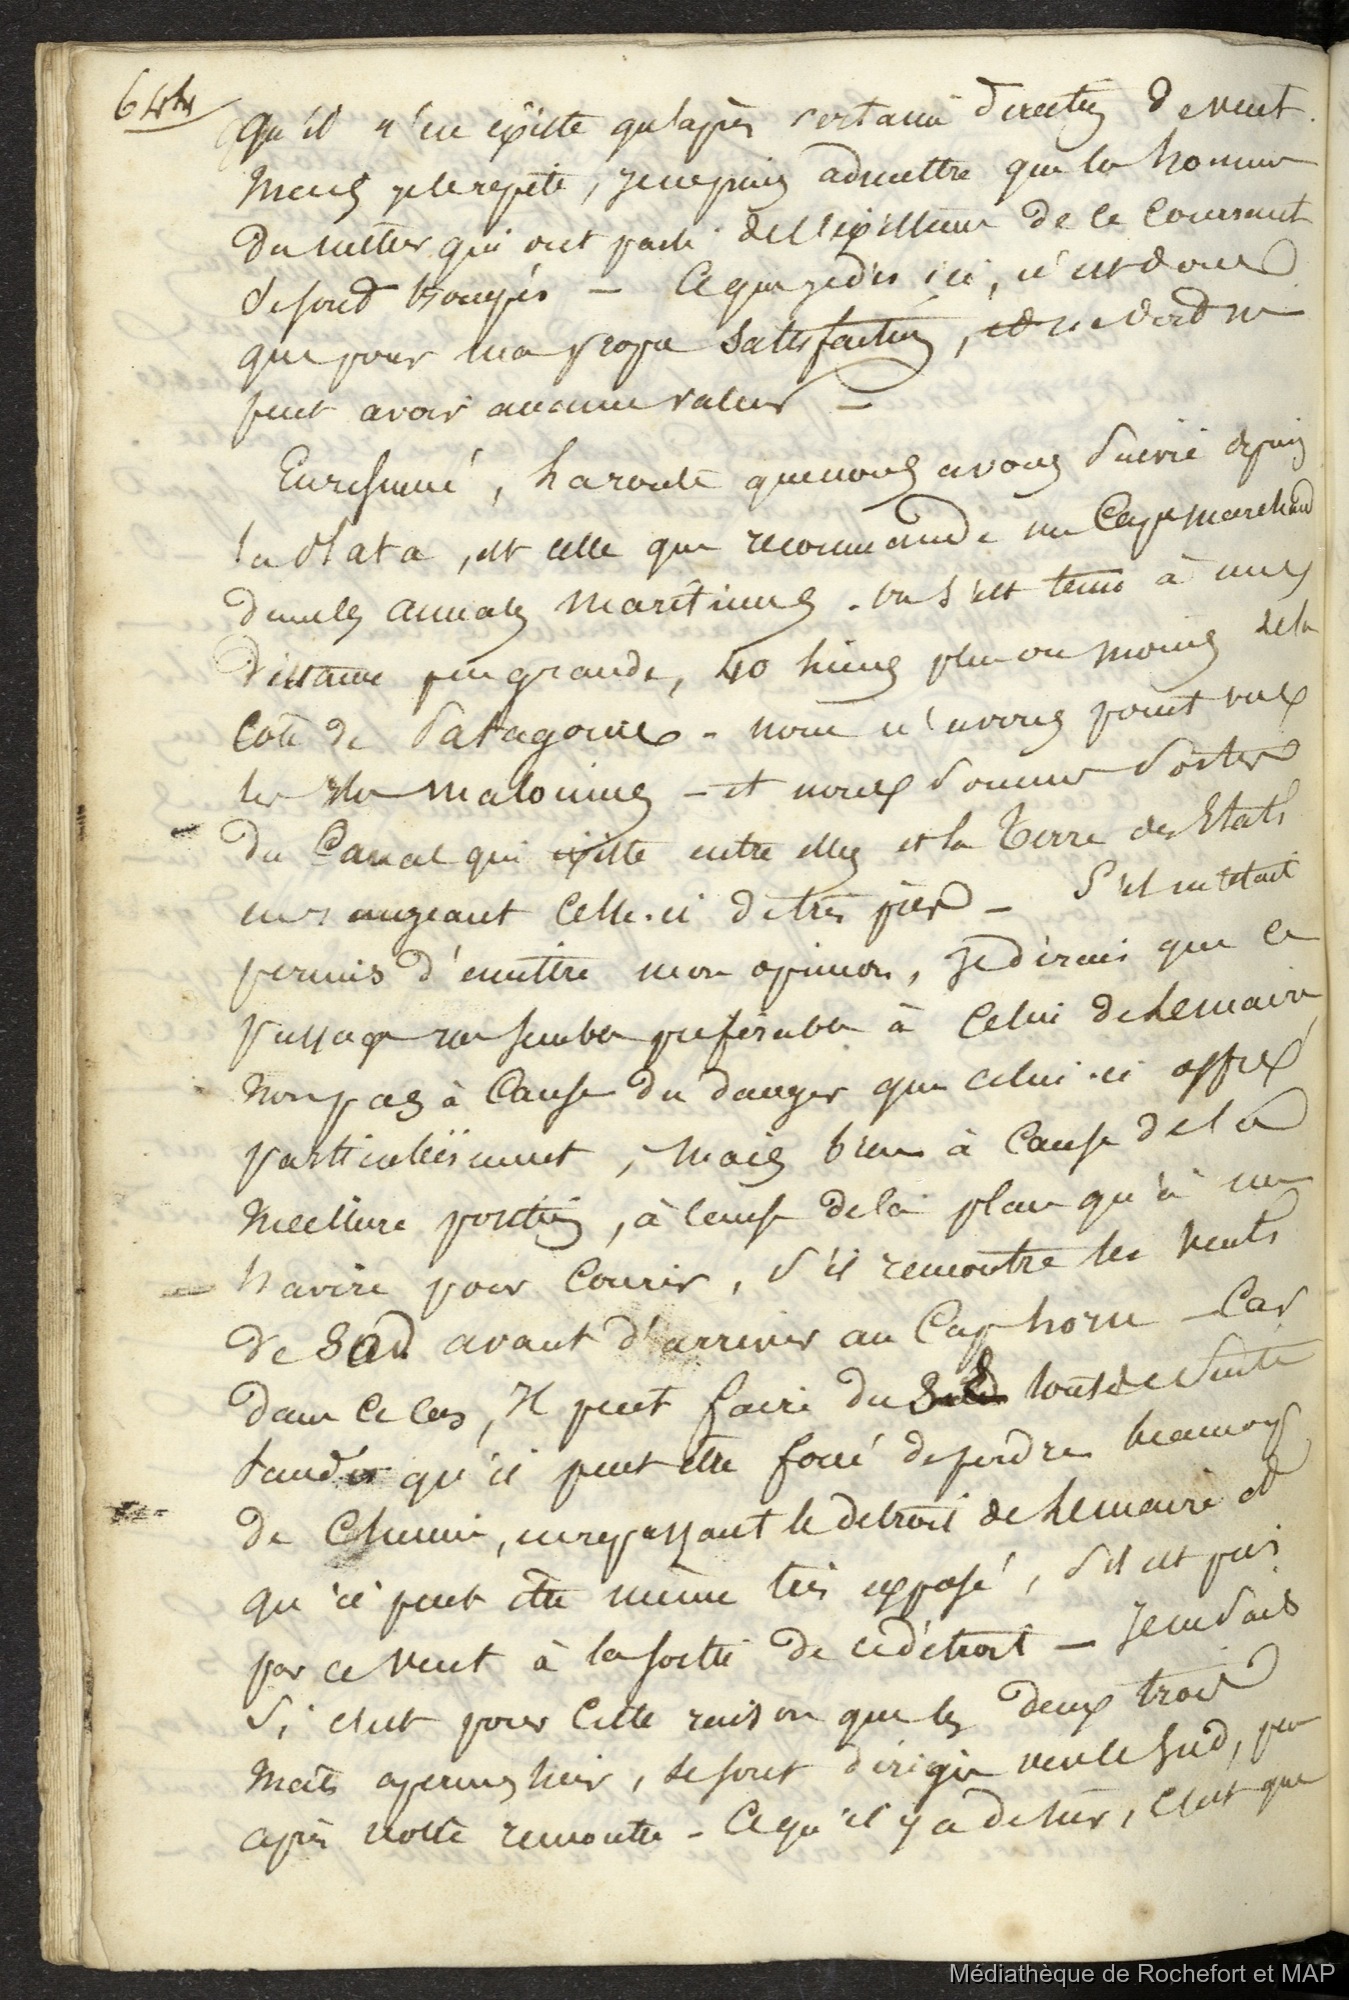 644
qu'il n'en éxiste qu'après certaine direction de vent.
Mais je le repète, je ne puis admettre que les hommes
du metier qui ont parlé de l'éxistence de ce courant
se sont trompés — Ce que je dis ici, n'est donc
que pour ma propre satisfaction, et ne doit ni
peut avoir aucune valeur —
En résumé, la route que nous avons suivie depuis
la Plata, est celle que recommande un Cape marchand
dans les annales maritimes. on s'est tenu à une
distance peu grande, 40 lieues plus ou moins de la
Côte de Patagonie - nous n'avons point vue
les Iles malouines - et nous sommes sortis
du Canal qui éxiste entre elles et la Terre des Etats
en rangeant celle-ci de très près — S'il m'était
permis d'émettre mon opinion, je dirais que ce
passage me semble préférable à celui de Lemaire
non pas à Cause du danger que celui-ci offre
particulièrement, mais bien à Cause de la
meilleure position, à cause de la place qu'à un
navire pour Courir, s'il rencontre les vents
de S.O. avant d'arriver au Cap horn — Car
dans ce cas, Il peut faire du Sud tout de suite
tandis qu'il peut être forcé de perdre beaucoup
de Chemin, en repassant le detroit de Lemaire et
qu'il peut être même très exposé, s'il est pris
par ce vent à la sortie de ce détroit — Je ne sais
si c'est pour cette raison que les deux trois
mats aperçus hier, se sont dirigés vers le Sud, peu
après notre rencontre - Ce qu'il y a de sûr, c'est que
Médiathèque de Rochefort et MAP